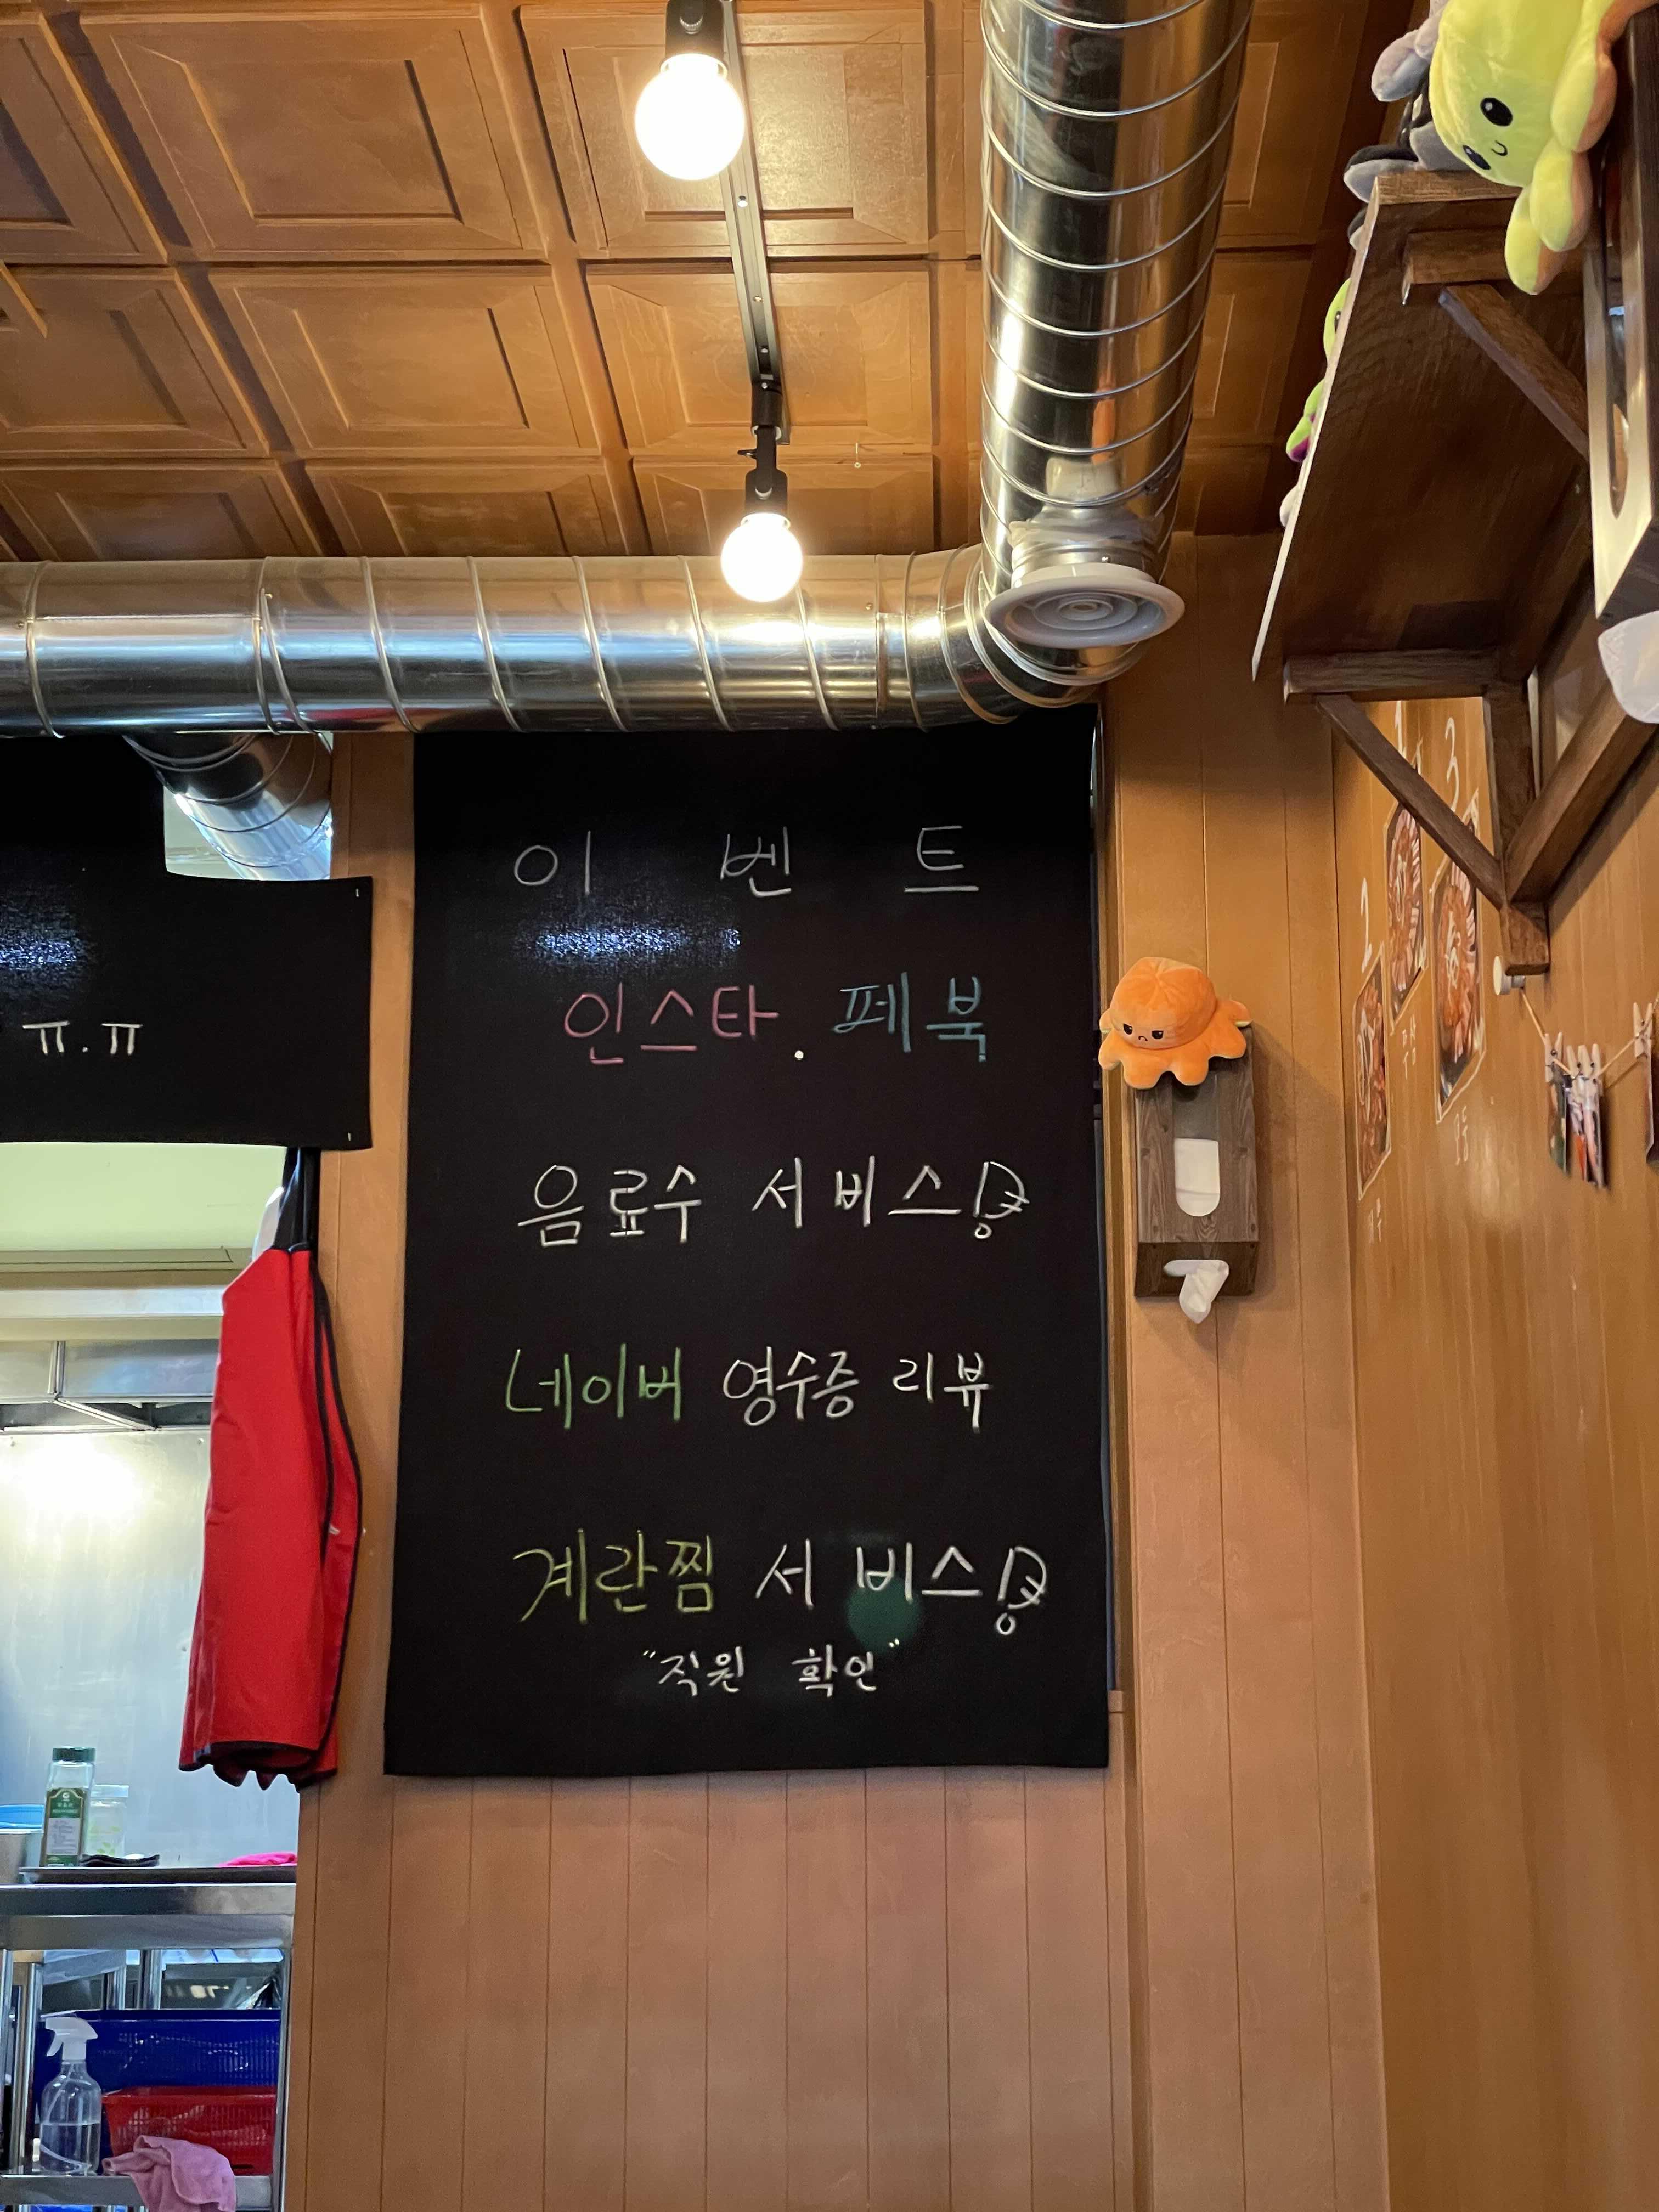 ㅠ.ㅠ
이 벤 트
인스타. 페북
음료수 서비스!
네이버 영수증 리뷰
계란찜 서비스!
"직원 확인"
1
3
2